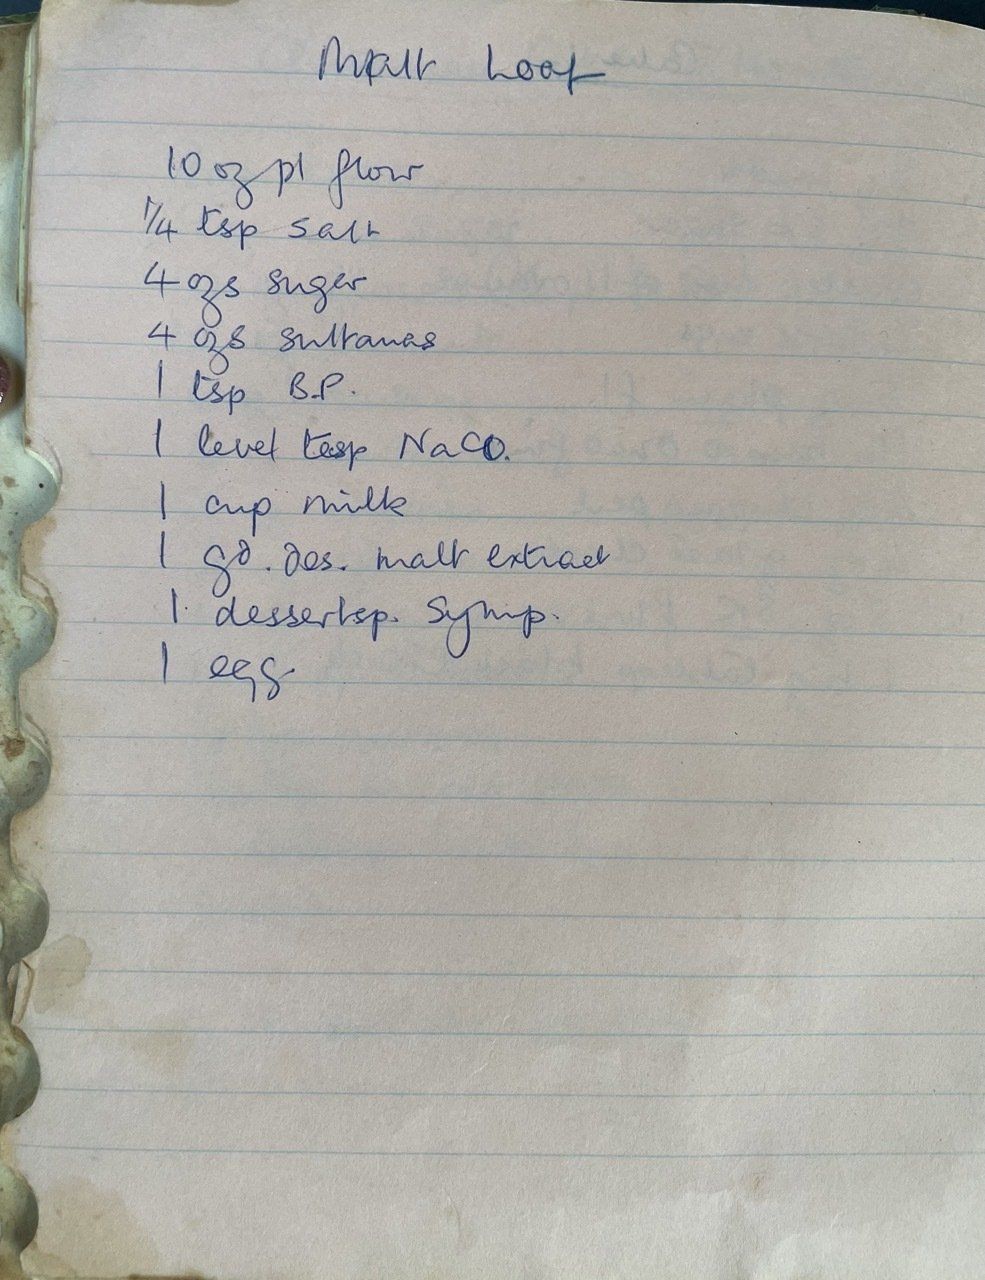 Malt Loaf
10 oz pl flour
1/4 tsp salt
4 ozs suger
4 ozs sultanas
1 tsp B.P.
1 level tesp NaCO.
1 cup milk
1 gd. des. malt extract
1. dessertsp. Syrup.
1 egg